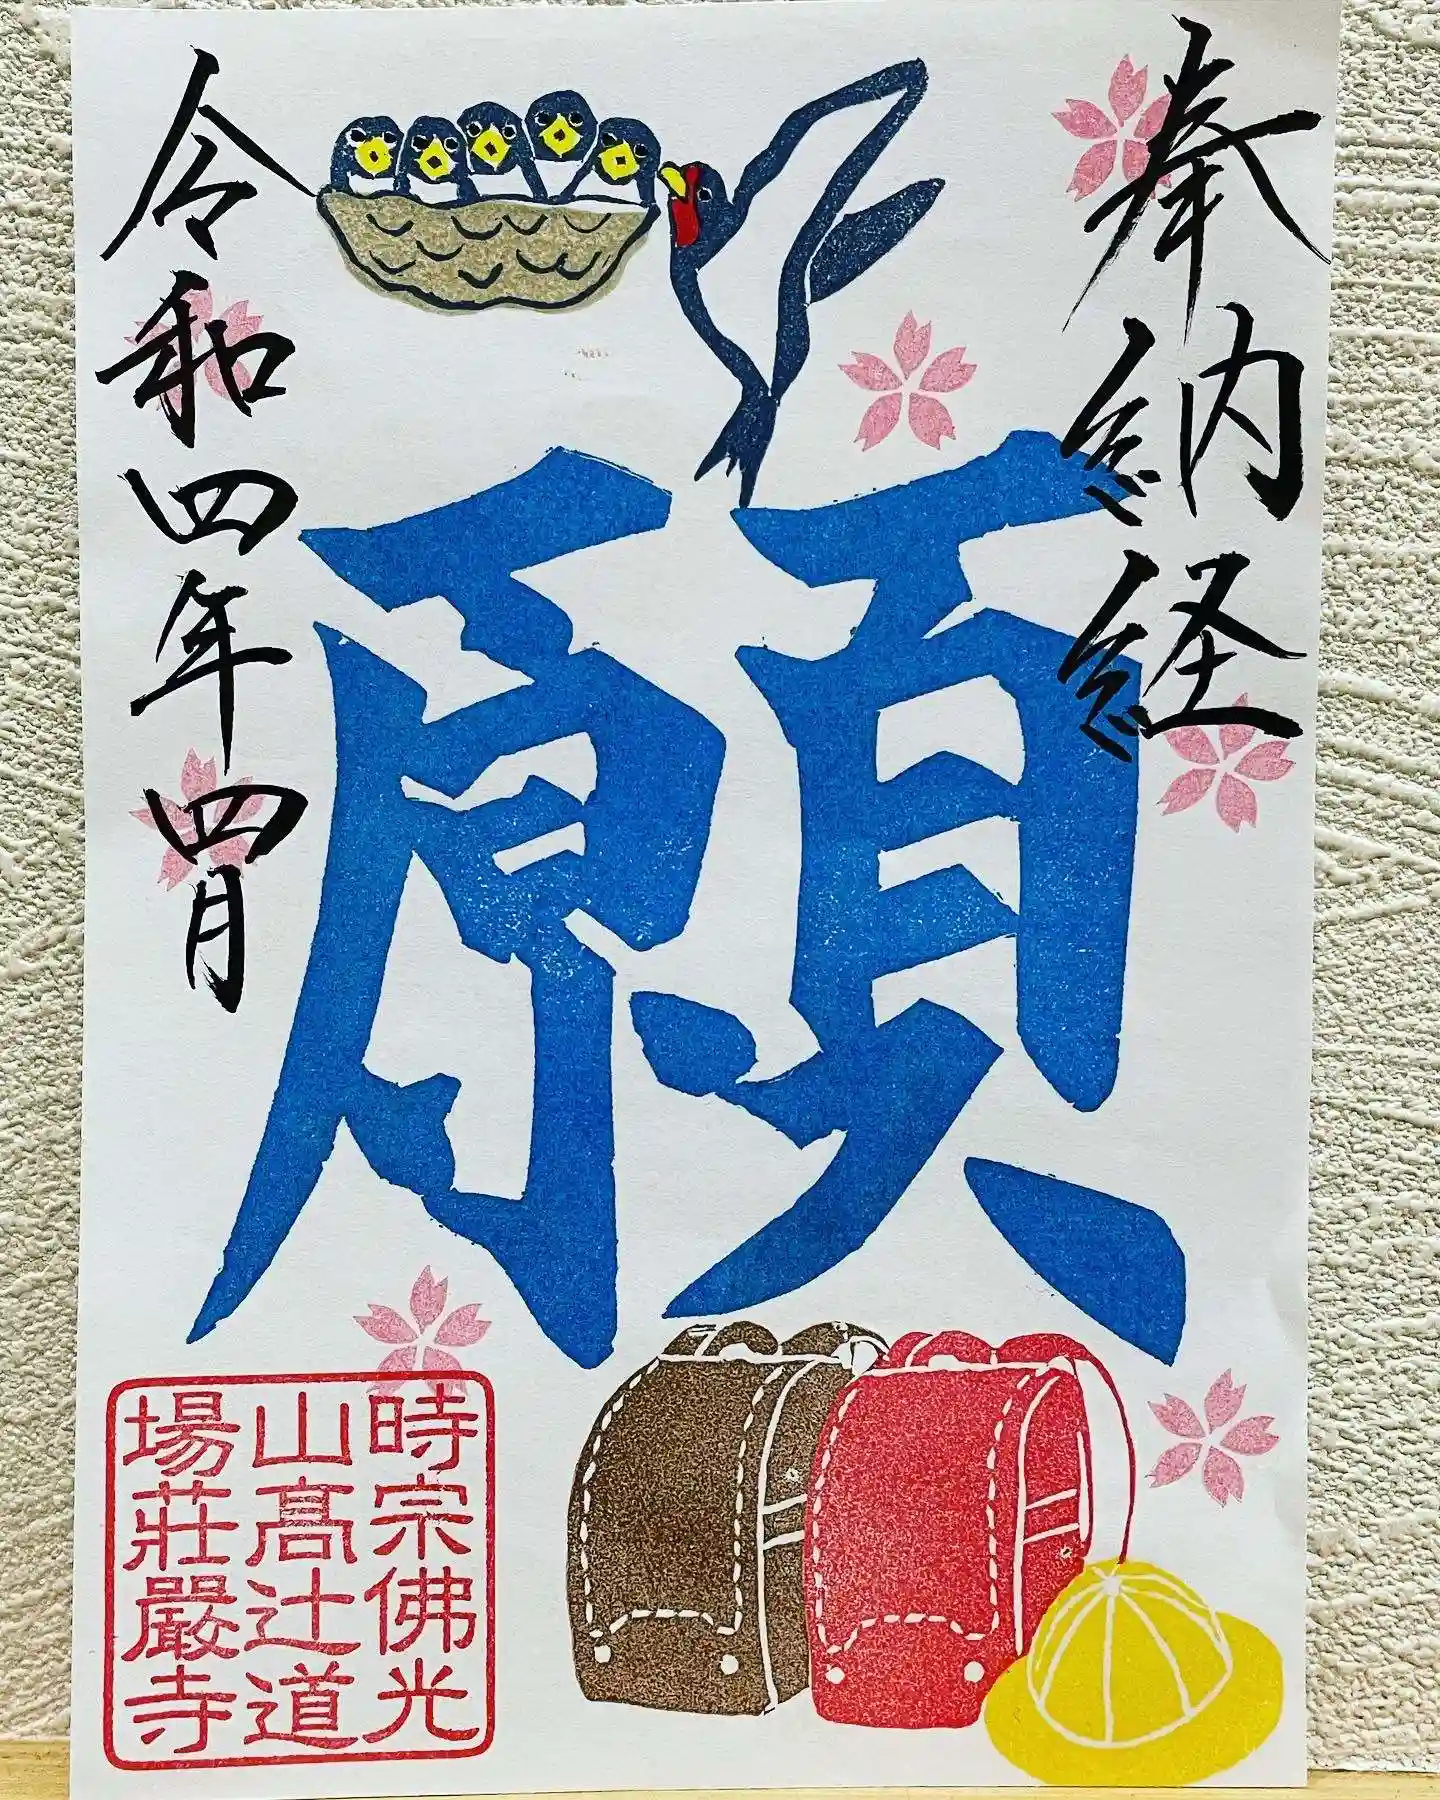 奉納経
願
令和四年四月
時宗佛光
山髙辻道
場莊嚴寺